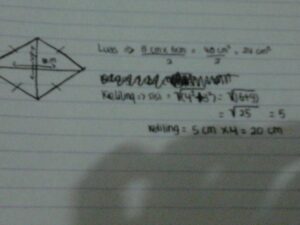 Luas ⇒ 8 cm x 6 cm / 2 = 48 cm² / 2 = 24 cm²
Keliling ⇒ sisi = √(4²+3²) = √(16+9)
= √25 = 5
Keliling = 5 cm x 4 = 20 cm